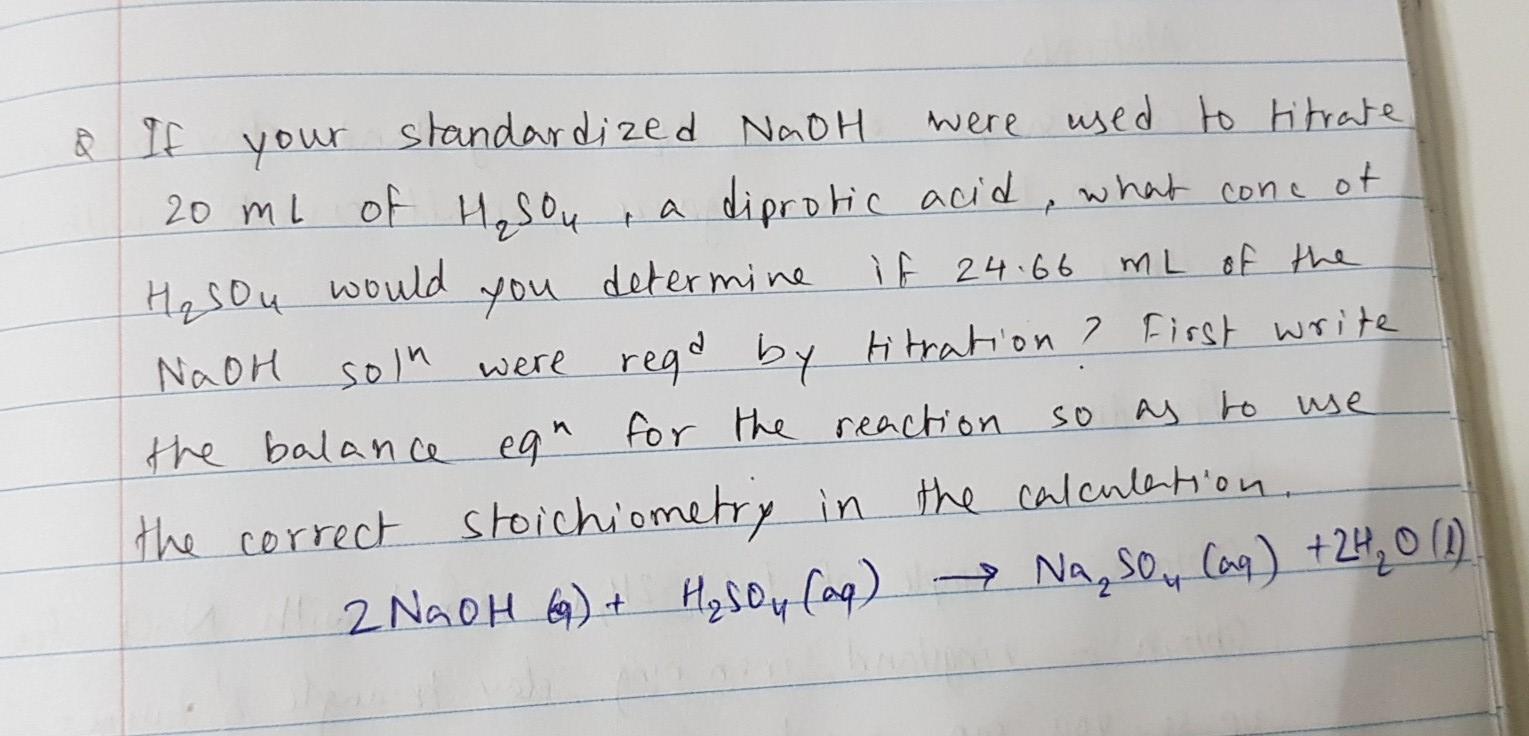 Q If your standardized NaOH were used to titrate
20 mL of H₂SO₄, a diprotic acid, what conc of
H₂SO₄ would you determine if 24.66 mL of the
NaOH solⁿ were reqᵈ by titration? First write
the balance eqⁿ for the reaction so as to use
the correct stoichiometry in the calculation.
2 NaOH (aq) + H₂SO₄ (aq) → Na₂SO₄ (aq) + 2H₂O (l)